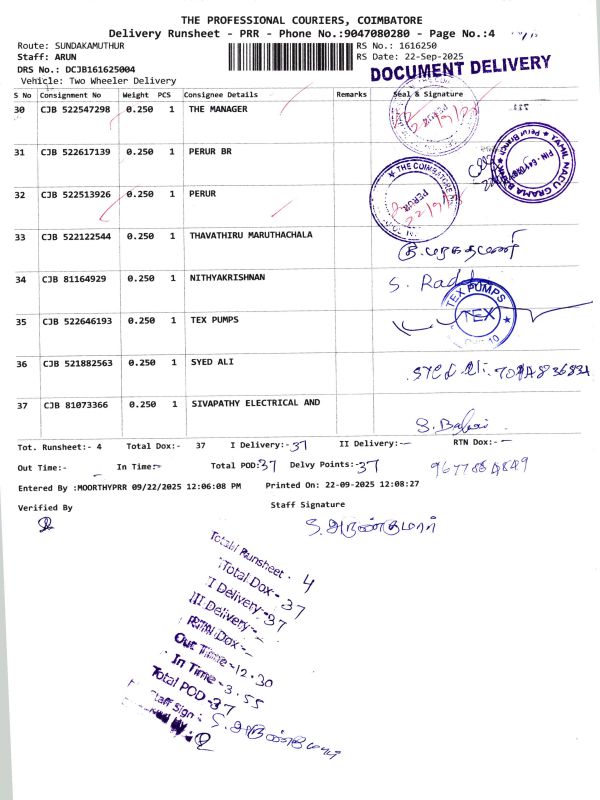 THE PROFESSIONAL COURIERS, COIMBATORE
Delivery Runsheet - PRR - Phone No.:9047080280 - Page No.:4
Route: SUNDAKAMUTHUR
RS No.: 1616250
Staff: ARUN
RS Date: 22-Sep-2025
DRS No.: DCJB161625004
DOCUMENT DELIVERY
Vehicle: Two Wheeler Delivery
S No Consignment No Weight PCS Consignee Details Remarks Seal & Signature
30 CJB 522547298 0.250 1 THE MANAGER
PERUR
31 CJB 522617139 0.250 1 PERUR BR
TAMIL NADU GRAMA BANK
32 CJB 522513926 0.250 1 PERUR
THE COIMBATORE
PERUR
22/9/25
33 CJB 522122544 0.250 1 THAVATHIRU MARUTHACHALA
34 CJB 81164929 0.250 1 NITHYAKRISHNAN
S.
35 CJB 522646193 0.250 1 TEX PUMPS
TEX PUMPS
TEX
36 CJB 521882563 0.250 1 SYED ALI
37 CJB 81073366 0.250 1 SIVAPATHY ELECTRICAL AND
Tot. Runsheet:- 4 Total Dox:- 37 I Delivery:-37 II Delivery:- RTN Dox:-
Out Time:- In Time:- Total POD:37 Delvy Points:-37
9677884849
Entered By :MOORTHYPRR 09/22/2025 12:06:08 PM Printed On: 22-09-2025 12:08:27
Verified By Staff Signature
S. அருண்குமார்
Total Runsheet - 4
Total Dox - 37
I Delivery - 37
II Delivery -
RTN Dox -
Out Time - 12.30
In Time - 3.55
Total POD - 37
Staff Sign : S. அருண்குமார்